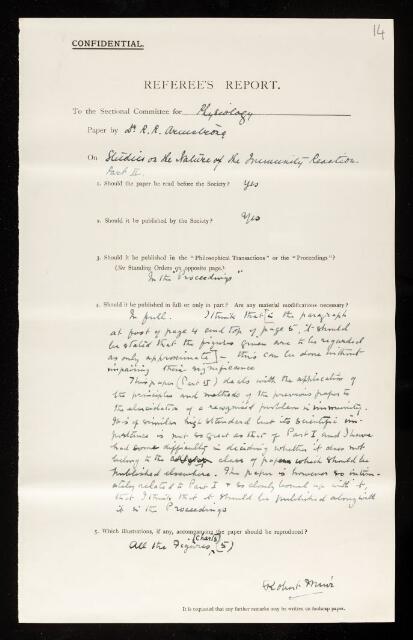 14
CONFIDENTIAL.
REFEREE'S REPORT.
To the Sectional Committee for Physiology
Paper by Dr. R. R. Armstrong
On Studies on the Nature of the Immunity Reaction.
Part II.
1. Should the paper be read before the Society? Yes
2. Should it be published by the Society? Yes
3. Should it be published in the "Philosophical Transactions" or the "Proceedings"?
(See Standing Orders on opposite page.)
In the "Proceedings"
4. Should it be published in full or only in part? Are any material modifications necessary?
In full. I think that [in the paragraph
at foot of page 4 and top of page 5, it should
be stated that the figures given are to be regarded
as only approximate] –, this can be done without
impairing their significance
This paper (Part II) deals with the application of
the principles and methods of the previous paper to
the elucidation of a recognised problem in immunity.
It is of similar high standard but its scientific im-
portance is not so great as that of Part I, and I have
had some difficulty in deciding whether it does not
belong to the class of papers which should be
published elsewhere. The paper is however so intim-
ately related to Part I & so closely bound up with it,
that I think that it should be published along with
it in the Proceedings
5. Which illustrations, if any, accompanying the paper should be reproduced?
All the Figures, (Charts) (5)
Robert Muir
It is requested that any further remarks may be written on foolscap paper.